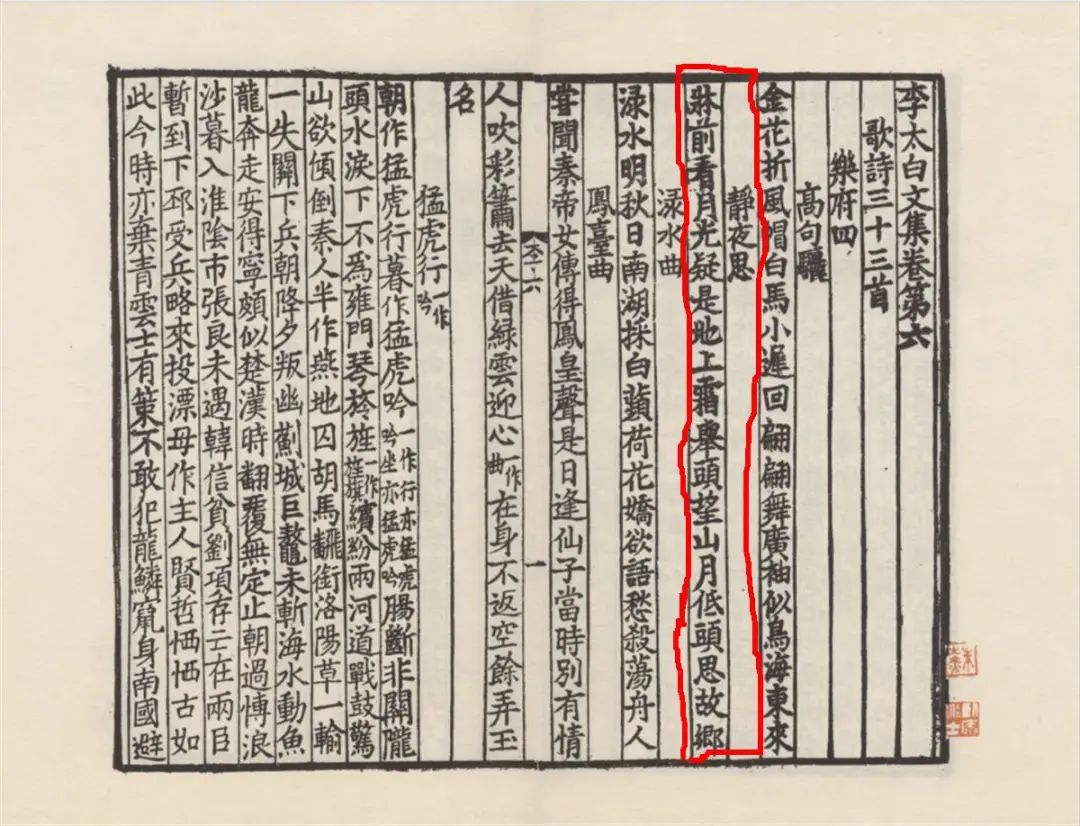 李太白文集卷第六
歌詩三十三首
樂府四
高句驪
金花折風帽白馬小遲回翩翩舞廣袖似鳥海東來
靜夜思
牀前看月光疑是地上霜舉頭望山月低頭思故鄉
淥水曲
淥水明秋日南湖採白蘋荷花嬌欲語愁殺蕩舟人
鳳臺曲
嘗聞秦帝女傳得鳳皇聲是日逢仙子當時別有情
六
一
人吹彩簫去天借綠雲迎心一作曲在身不返空餘弄玉
名
猛虎行一作吟
朝作猛虎行暮作猛虎吟一作行亦猛虎吟坐亦猛虎吟腸斷非關隴
頭水淚下不爲雍門琴旌旌一作旌旗繽紛兩河道戰鼓驚
山欲傾倒秦人半作燕地囚胡馬翻銜洛陽草一輸
一失關下兵朝降夕叛幽薊城巨鼇未斬海水動魚
龍奔走安得寧頗似楚漢時翻覆無定止朝過博浪
沙暮入淮陰市張良未遇韓信貧劉項存亡在兩臣
暫到下邳受兵略來投漂母作主人賢哲栖栖古如
此今時亦棄青雲士有策不敢犯龍鱗竄身南國避